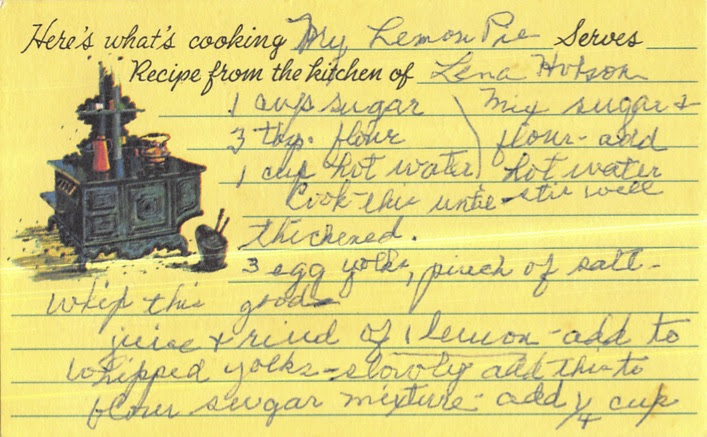 Here's what's cooking My Lemon Pie Serves
Recipe from the kitchen of Lena Hobson
1 cup sugar ) mix sugar &
3 tbsp. flour ) flour - add
1 cup hot water ) hot water
Cook this until - stir well
thickened.
3 egg yolks, pinch of salt -
whip this good
juice & rind of 1 lemon - add to
whipped yolks - slowly add this to
flour sugar mixture - add 1/4 cup